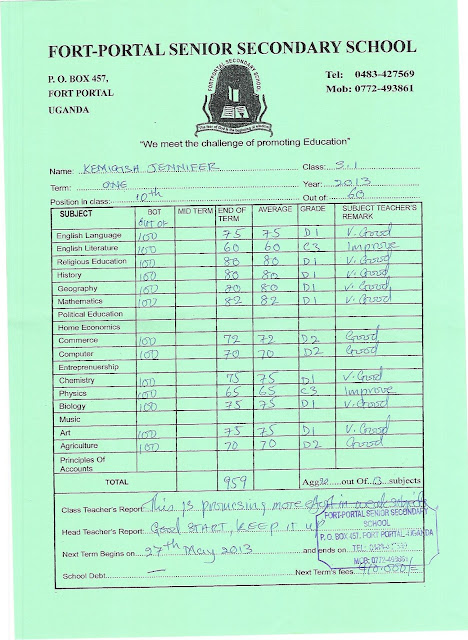 FORT-PORTAL SENIOR SECONDARY SCHOOL
P. O. BOX 457,
FORT PORTAL
UGANDA
Tel: 0483-427569
Mob: 0772-493861
"We meet the challenge of promoting Education"
Name: KEMIGISH JENNIFER Class: S.1
Term: ONE Year: 2013
Position in class: 10th Out of: 60
SUBJECT BOT OUT OF MID TERM END OF TERM AVERAGE GRADE SUBJECT TEACHER'S REMARK
English Language 100 75 75 D1 V. Good
English Literature 100 60 60 C3 Improve
Religious Education 100 80 80 D1 V. Good
History 100 80 80 D1 V. Good
Geography 100 80 80 D1 V. Good
Mathematics 100 82 82 D1 V. Good
Political Education
Home Economics
Commerce 100 72 72 D2 Good
Computer 100 70 70 D2 Good
Entreprenuership
Chemistry 100 75 75 D1 V. Good
Physics 100 65 65 C3 Improve
Biology 100 75 75 D1 V. Good
Music
Art 100 75 75 D1 V. Good
Agriculture 100 70 70 D2 Good
Principles Of Accounts
TOTAL 959 Agg out Of 13 subjects
Class Teacher's Report: This is promising more effort in weak subjects
Head Teacher's Report: Good START, KEEP IT UP
Next Term Begins on 27th May 2013 and ends on
School Debt Next Term's fees: 910.000/=
FORT-PORTAL SENIOR SECONDARY
SCHOOL
P. O. BOX 457, FORT PORTAL-UGANDA
TEL: 0483-427569
MOB: 0772-493861